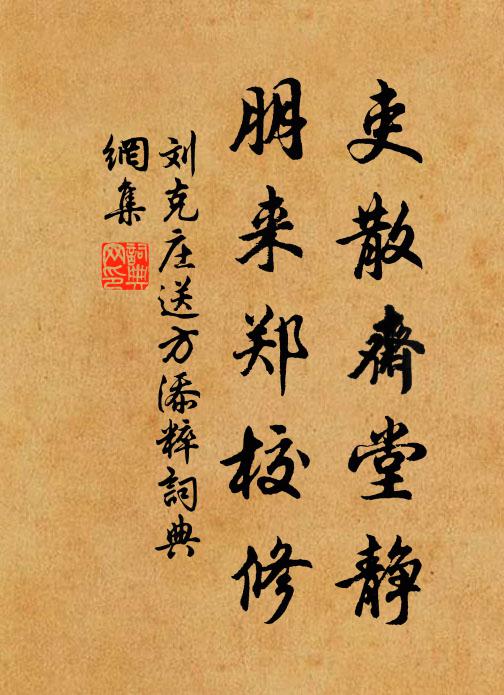 吏散齋堂静
朋来郑校修
刘克庄送方添粹詞典
網集
詞典
网印